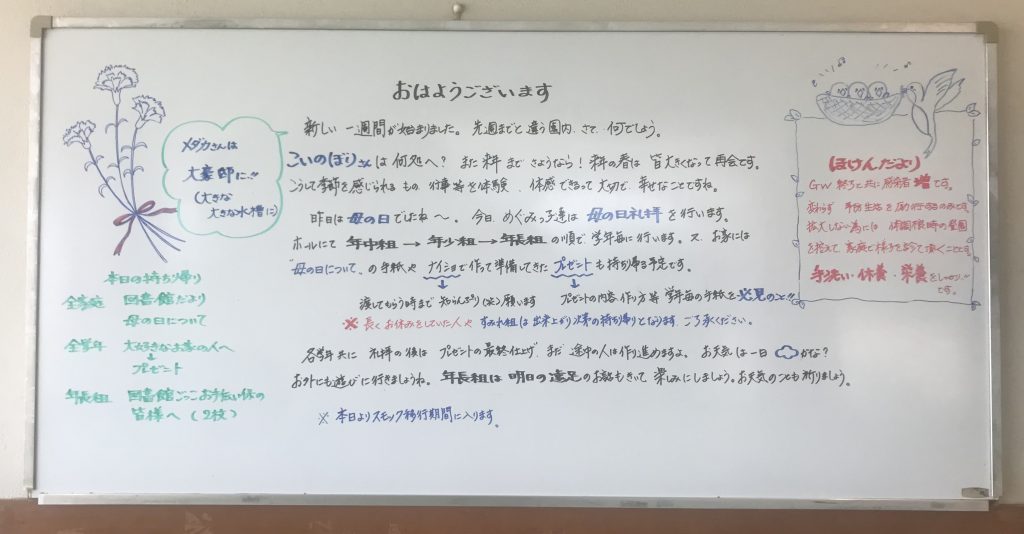 おはようございます
新しい一週間が始まりました。先週までと違う園内、さて、何でしょう。
こいのぼりさんは何処へ? また来年までさようなら! 来年の春は皆大きくなって再会です。
こうして季節を感じられるもの、行事等を体験、体感できるって大切で、幸せなことですね。
昨日は母の日でしたね〜。今日、めぐみっ子達は母の日礼拝を行います。
ホールにて年中組→年少組→年長組の順で学年毎に行います。又、お家には
"母の日について"の手紙やナイショで作って準備してきたプレゼントも持ち帰る予定です。
渡してもらう時まで知らんぷり(笑)願います
プレゼントの内容、作り方等、学年毎の手紙を必見のこと!!
※長くお休みをしていた人や、すみれ組は出来上がり次第の持ち帰りとなります。ご了承ください。
各学年共に礼拝の後は、プレゼントの最終仕上げ、まだ途中の人は作り進めますよ。お天気は一日かな?
お外にも遊びに行きましょうね。年長組は明日の遠足のお話もきいて楽しみにしましょう。お天気のことも祈りましょう。
※本日よりスモック移行期間に入ります。
メダカさんは
大豪邸に…!!
(大きな
大きな水槽に)
本日の持ち帰り
全家庭 図書館だより
母の日について
全学年 大好きなお家の人へ
→プレゼント
年長組 図書館ごっこお手伝い係の
皆様へ(2枚)
ほけんだより
GW終了と共に 増です。
変わらず 予防 を励行するのみです。
拡大しない為には 時の
家庭で様子を て頂くことです。
手洗い・休養・栄養をしっかり!!
です。